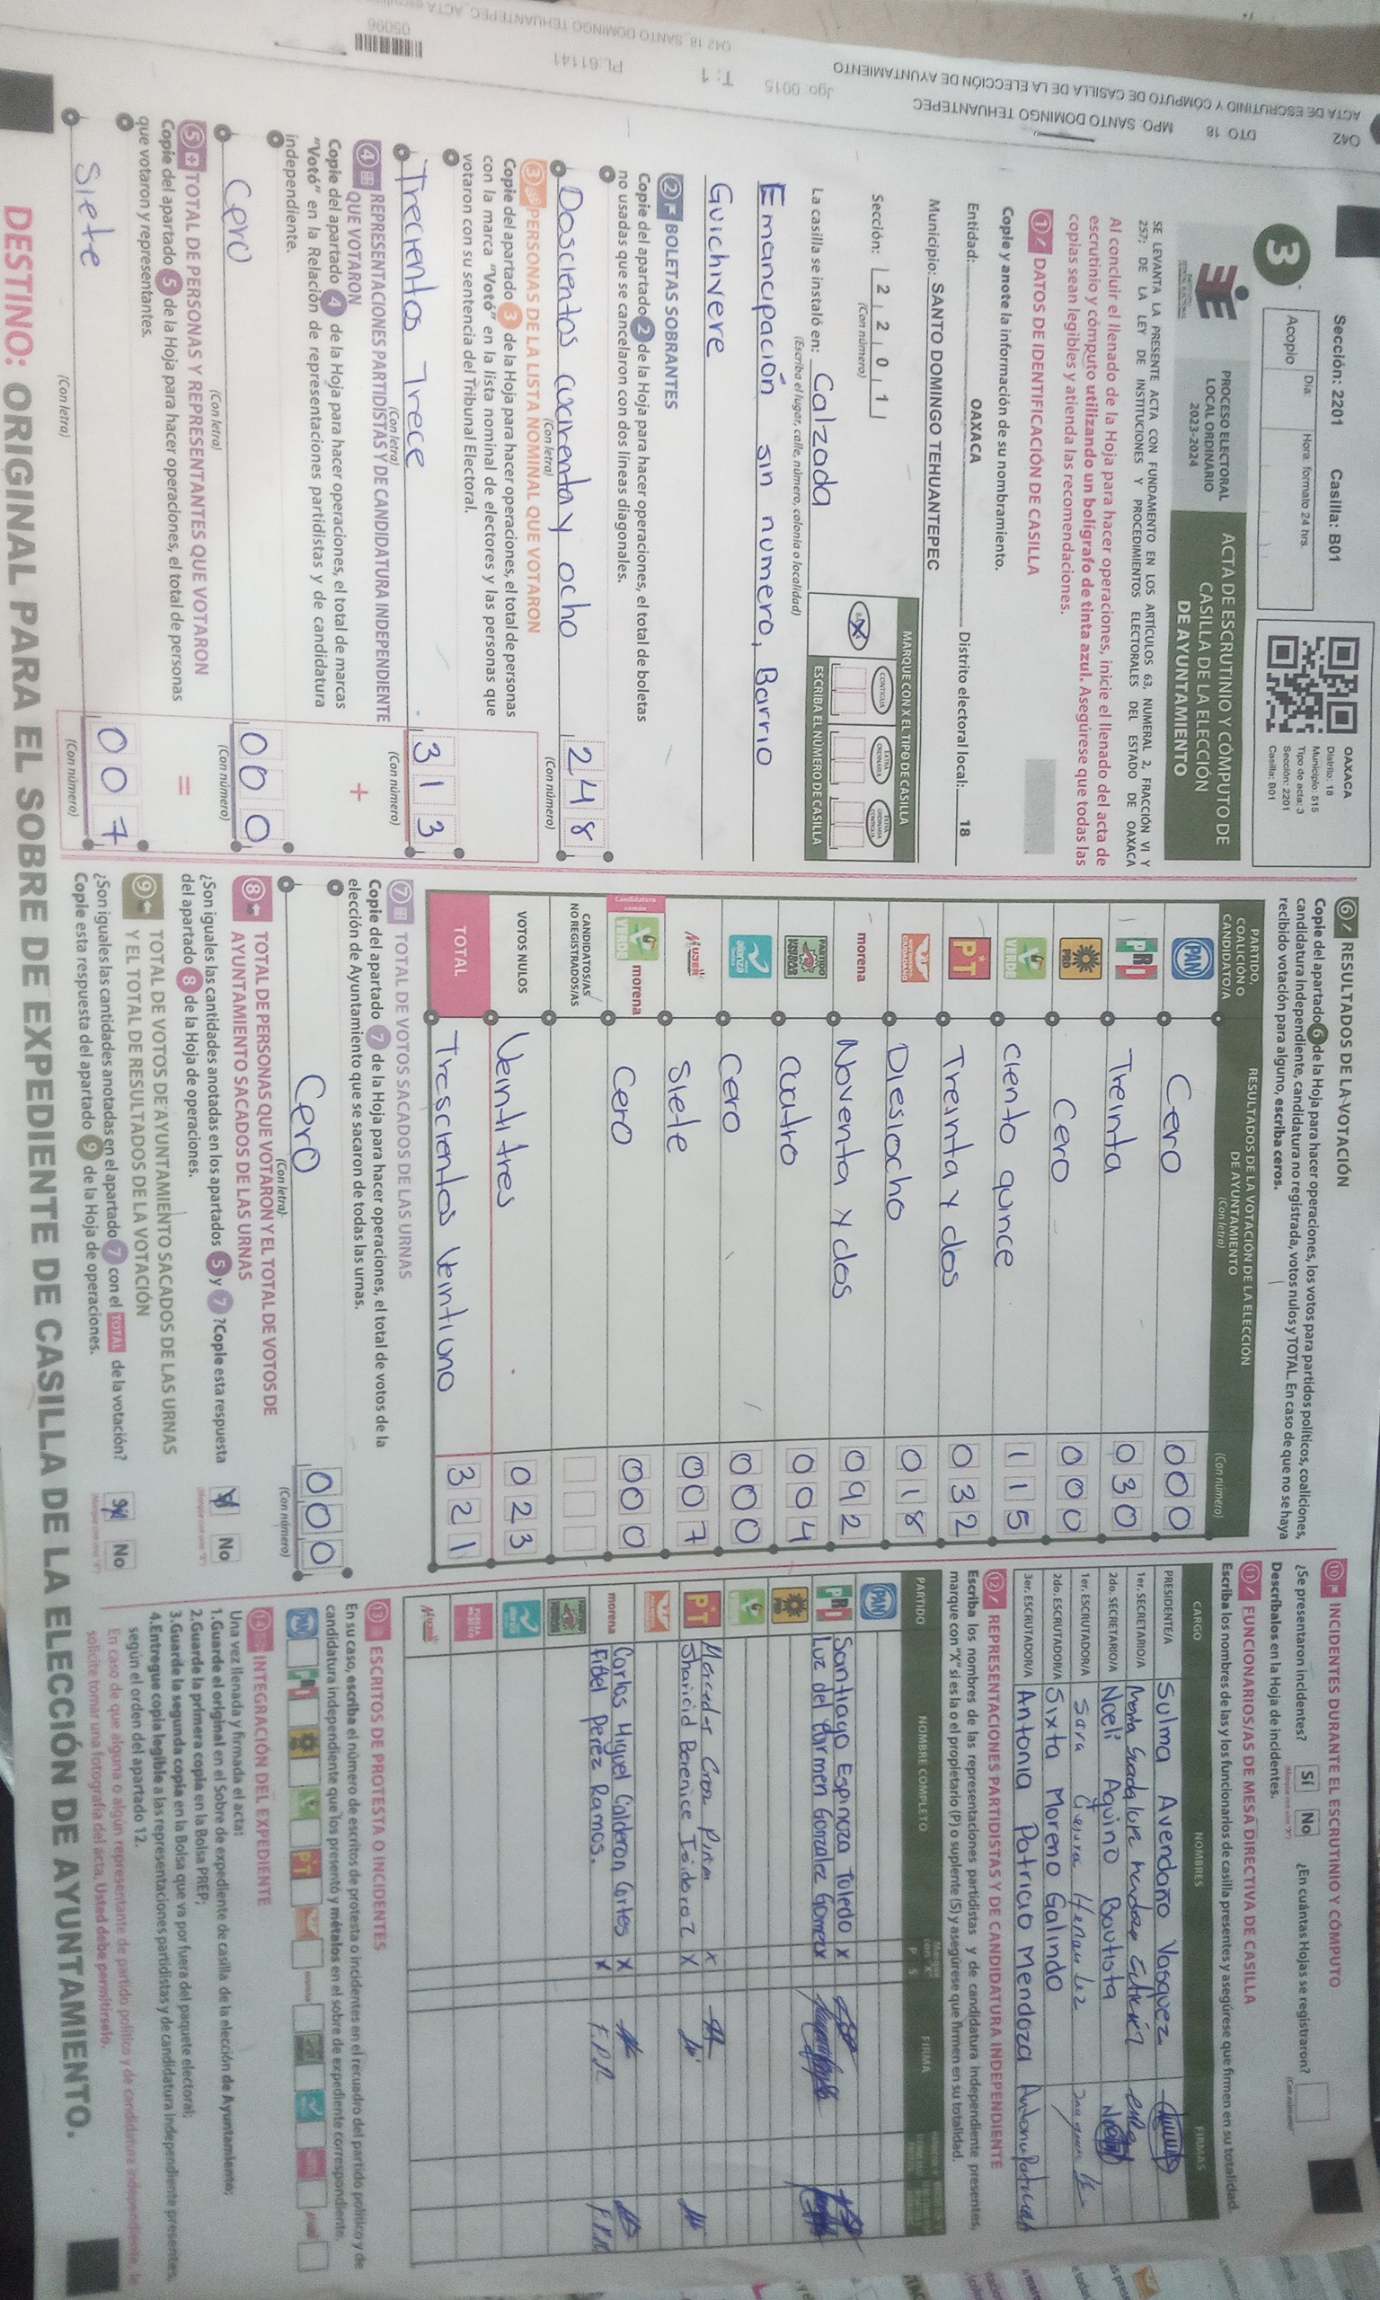 ACTA DE ESCRUTINIO Y CÓMPUTO DE CASILLA DE LA ELECCIÓN DE AYUNTAMIENTO
042 DTO 18 MPO. SANTO DOMINGO TEHUANTEPEC
Jgo. 0015 T: 1 PL 61141
05096
3
Sección: 2201 Casilla: B01
Acopio
Día:
Hora formato 24 hrs.
OAXACA
Distrito: 18
Municipio: 515
Tipo de acta: 3
Sección: 2201
Casilla: B01
PROCESO ELECTORAL
LOCAL ORDINARIO
2023-2024
ACTA DE ESCRUTINIO Y CÓMPUTO DE
CASILLA DE LA ELECCIÓN
DE AYUNTAMIENTO
SE LEVANTA LA PRESENTE ACTA CON FUNDAMENTO EN LOS ARTÍCULOS 63, NUMERAL 2, FRACCIÓN VI Y
257; DE LA LEY DE INSTITUCIONES Y PROCEDIMIENTOS ELECTORALES DEL ESTADO DE OAXACA
Al concluir el llenado de la Hoja para hacer operaciones, inicie el llenado del acta de
escrutinio y cómputo utilizando un bolígrafo de tinta azul. Asegúrese que todas las
copias sean legibles y atienda las recomendaciones.
1 DATOS DE IDENTIFICACIÓN DE CASILLA
Copie y anote la información de su nombramiento.
Entidad: OAXACA Distrito electoral local: 18
Municipio: SANTO DOMINGO TEHUANTEPEC
Sección: 2 2 0 1
(Con número)
MARQUE CON X EL TIPO DE CASILLA
ESCRIBA EL NÚMERO DE CASILLA
La casilla se instaló en: Calzada
(Escriba el lugar, calle, número, colonia o localidad)
Emancipación sin numero, Barrio
Guichivere
2 BOLETAS SOBRANTES
Copie del apartado 2 de la Hoja para hacer operaciones, el total de boletas
no usadas que se cancelaron con dos líneas diagonales.
Doscientos cuarenta y ocho 248
(Con letra) (Con número)
3 PERSONAS DE LA LISTA NOMINAL QUE VOTARON
Copie del apartado 3 de la Hoja para hacer operaciones, el total de personas
con la marca "Votó" en la lista nominal de electores y las personas que
votaron con su sentencia del Tribunal Electoral.
Trecientos Trece 313
(Con letra) (Con número)
4 REPRESENTACIONES PARTIDISTAS Y DE CANDIDATURA INDEPENDIENTE
QUE VOTARON
+
Copie del apartado 4 de la Hoja para hacer operaciones, el total de marcas
"Votó" en la Relación de representaciones partidistas y de candidatura
independiente.
Cero 000
(Con letra) (Con número)
5 TOTAL DE PERSONAS Y REPRESENTANTES QUE VOTARON
=
Copie del apartado 5 de la Hoja para hacer operaciones, el total de personas
que votaron y representantes.
Siete 007
(Con letra) (Con número)
6 RESULTADOS DE LA VOTACIÓN
Copie del apartado 6 de la Hoja para hacer operaciones, los votos para partidos políticos, coaliciones,
candidatura independiente, candidatura no registrada, votos nulos y TOTAL. En caso de que no se haya
recibido votación para alguno, escriba ceros.
PARTIDO,
COALICIÓN O
CANDIDATO/A
RESULTADOS DE LA VOTACIÓN DE LA ELECCIÓN
DE AYUNTAMIENTO
(Con letra) (Con número)
PAN Cero 000
PRI Treinta 030
PRD Cero 000
VERDE Ciento quince 115
PT Treinta y dos 032
Diesiocho 018
morena Noventa y dos 092
cuatro 004
alianza Cero 000
MUJER Siete 007
Candidatura común
VERDE morena Cero 000
CANDIDATOS/AS
NO REGISTRADOS/AS
VOTOS NULOS Veintitres 023
TOTAL Trescientos Veintiuno 321
7 TOTAL DE VOTOS SACADOS DE LAS URNAS
Copie del apartado 7 de la Hoja para hacer operaciones, el total de votos de la
elección de Ayuntamiento que se sacaron de todas las urnas.
Cero 000
(Con letra) (Con número)
8 TOTAL DE PERSONAS QUE VOTARON Y EL TOTAL DE VOTOS DE
AYUNTAMIENTO SACADOS DE LAS URNAS
¿Son iguales las cantidades anotadas en los apartados 5 y 7 ? Copie esta respuesta
del apartado 8 de la Hoja de operaciones.
No
9 TOTAL DE VOTOS DE AYUNTAMIENTO SACADOS DE LAS URNAS
Y EL TOTAL DE RESULTADOS DE LA VOTACIÓN
¿Son iguales las cantidades anotadas en el apartado 7 con el TOTAL de la votación?
Copie esta respuesta del apartado 9 de la Hoja de operaciones.
Sí No
10 INCIDENTES DURANTE EL ESCRUTINIO Y CÓMPUTO
¿Se presentaron incidentes? Sí No ¿En cuántas Hojas se registraron?
Descríbalos en la Hoja de incidentes.
11 FUNCIONARIOS/AS DE MESA DIRECTIVA DE CASILLA
Escriba los nombres de las y los funcionarios de casilla presentes y asegúrese que firmen en su totalidad.
CARGO NOMBRES FIRMAS
PRESIDENTE/A Sulma Avendaño Vasquez
1er. SECRETARIO/A
2do. SECRETARIO/A Noeli Aquino Bautista
1er. ESCRUTADOR/A Sara
2do. ESCRUTADOR/A Sixta Moreno Galindo
3er. ESCRUTADOR/A Antonia Patricio Mendoza
12 REPRESENTACIONES PARTIDISTAS Y DE CANDIDATURA INDEPENDIENTE
Escriba los nombres de las representaciones partidistas y de candidatura independiente presentes,
marque con "X" si es la o el propietario (P) o suplente (S) y asegúrese que firmen en su totalidad.
PARTIDO NOMBRE COMPLETO P S FIRMA
PAN
PRI Santiago Espinoza Toledo X
Luz del Carmen Gonzalez Gomez X
PRD
VERDE
PT Mercedes Cruz X
Sharicid Berenice X
morena Carlos Miguel Calderon Cortes X
Fidel Perez Ramos. X F.P.R
MUJER
13 ESCRITOS DE PROTESTA O INCIDENTES
En su caso, escriba el número de escritos de protesta o incidentes en el recuadro del partido político y de
candidatura independiente que los presentó y métalos en el sobre de expediente correspondiente.
14 INTEGRACIÓN DEL EXPEDIENTE
Una vez llenada y firmada el acta:
1.Guarde el original en el Sobre de expediente de casilla de la elección de Ayuntamiento;
2.Guarde la primera copia en la Bolsa PREP;
3.Guarde la segunda copia en la Bolsa que va por fuera del paquete electoral;
4.Entregue copia legible a las representaciones partidistas y de candidatura independiente presentes,
según el orden del apartado 12.
En caso de que alguna o algún representante de partido político y de candidatura independiente, le
solicite tomar una fotografía del acta, Usted debe permitírselo.
DESTINO: ORIGINAL PARA EL SOBRE DE EXPEDIENTE DE CASILLA DE LA ELECCIÓN DE AYUNTAMIENTO.